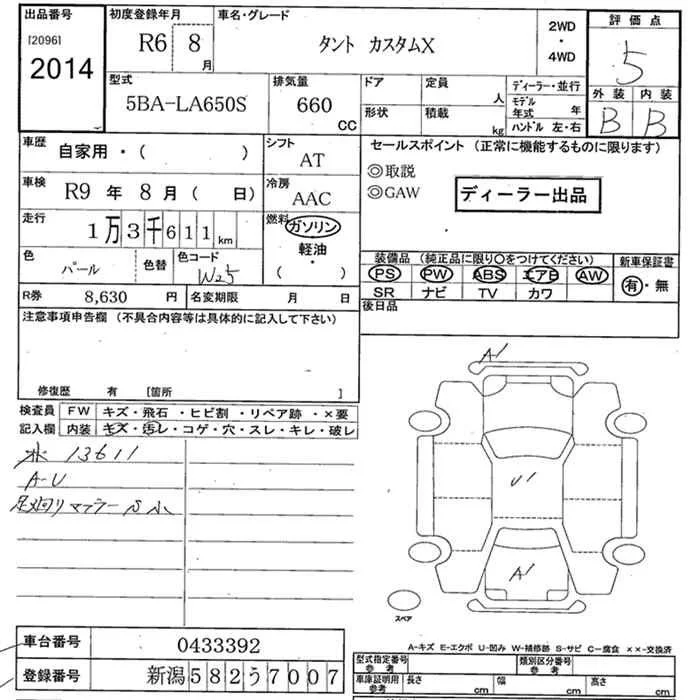 出品番号
[2096]
2014
初度登録年月
R6 8
月
車名・グレード
タント カスタムX
2WD
・
4WD
評価点
5
外装 内装
B B
型式
5BA-LA650S
排気量
660
CC
ドア
形状
定員
人
積載
kg
ディーラー・並行
モデル年式 年
ハンドル 左・右
車歴
自家用・( )
シフト
AT
セールスポイント (正常に機能するものに限ります)
◎取説
◎GAW
ディーラー出品
車検
R9 年 8 月 ( 日)
冷房
AAC
走行
1万3千611km
燃料
ガソリン
軽油・
( )
色
パール
色替
色コード
W25
装備品 (純正品に限り〇をつけてください)
PS PW ABS エアB AW
SR ナビ TV カワ
新車保証書
有・無
R券 8,630 円
名変期限 月 日
後日品
注意事項申告欄 (不具合内容等は具体的に記入して下さい)
修復歴 有 [箇所 ]
検査員
記入欄
FW キズ・飛石 ・ヒビ割 ・リペア跡 ・×要
内装 キズ・汚レ・コゲ・穴・スレ・キレ・破レ
13611
A-U
足廻り マフラー S小
A1
U1
A1
スペア
車台番号 0433392
登録番号 新潟582う7007
A-キズ E-エクボ U-凹み W-補修跡 S-サビ C-腐食 ××-交換済
型式指定番号
参考
類別区分番号
参考
車庫証明用
参考
長さ cm
幅 cm
高さ cm